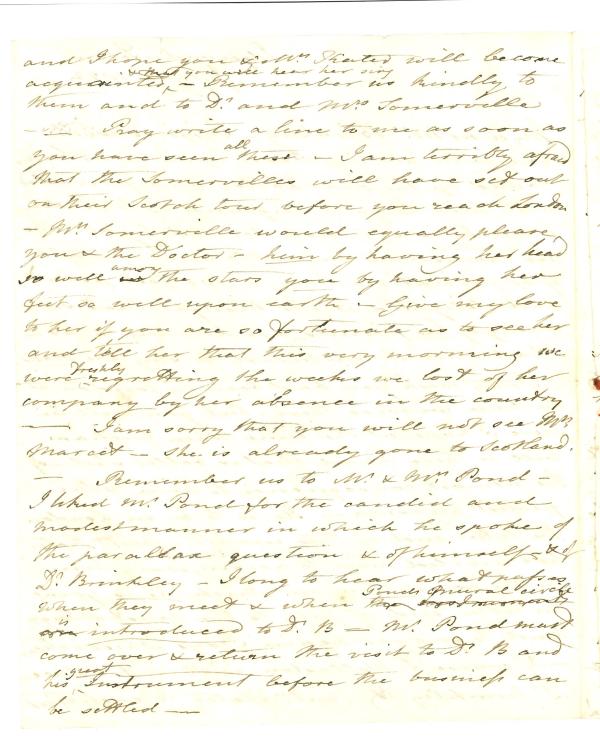 and I hope you & Mrs Kater will become
& that you will hear her sing
acquainted, – Remember us kindly to
them and to Dr. and Mrs Somerville
— Pray write a line to me as soon as
you have seen all these – I am terribly afraid
that the Somervilles will have set out
on their Scotch tour before you reach London
– Mrs Somerville would equally please
you & the Doctor – him by having her head
so well among the stars you by having her
feet so well upon earth – Give my love
to her if you are so fortunate as to see her
and tell her that this very morning we
were freshly regretting the weeks we lost of her
company by her absence in the country
— I am sorry that you will not see Mrs
Marcet – she is already gone to Scotland.
— Remember us to Mr. & Mrs. Pond –
I liked Mr. Pond for the candid and
modest manner in which he spoke of
the parallax question & of himself & of
Dr. Brinkley – I long to hear what passes
when they meet & when Ponds mural circle
is introduced to Dr. B – Mr. Pond must
come over & return the visit to Dr B and
his great Instrument before the business can
be settled —